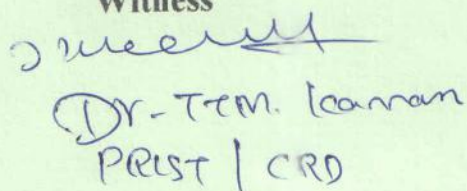 Witness
Dr. T.T.M. Kannan
PRIST | CRD